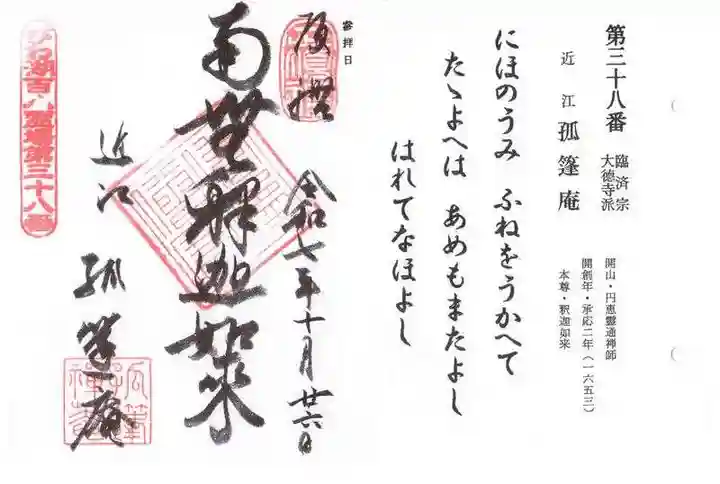 第三十八番
臨済宗
大徳寺派
近江 孤篷庵
開山・円恵霊通禅師
開創年・承応二年(一六五三)
本尊・釈迦如来
にほのうみ ふねをうかへて
たゝよへは あめもまたよし
はれてなほよし
参拝日
令和七年十月廿六日
南無釈迦如来
近江 孤篷庵
びわ湖百八霊場第三十八番